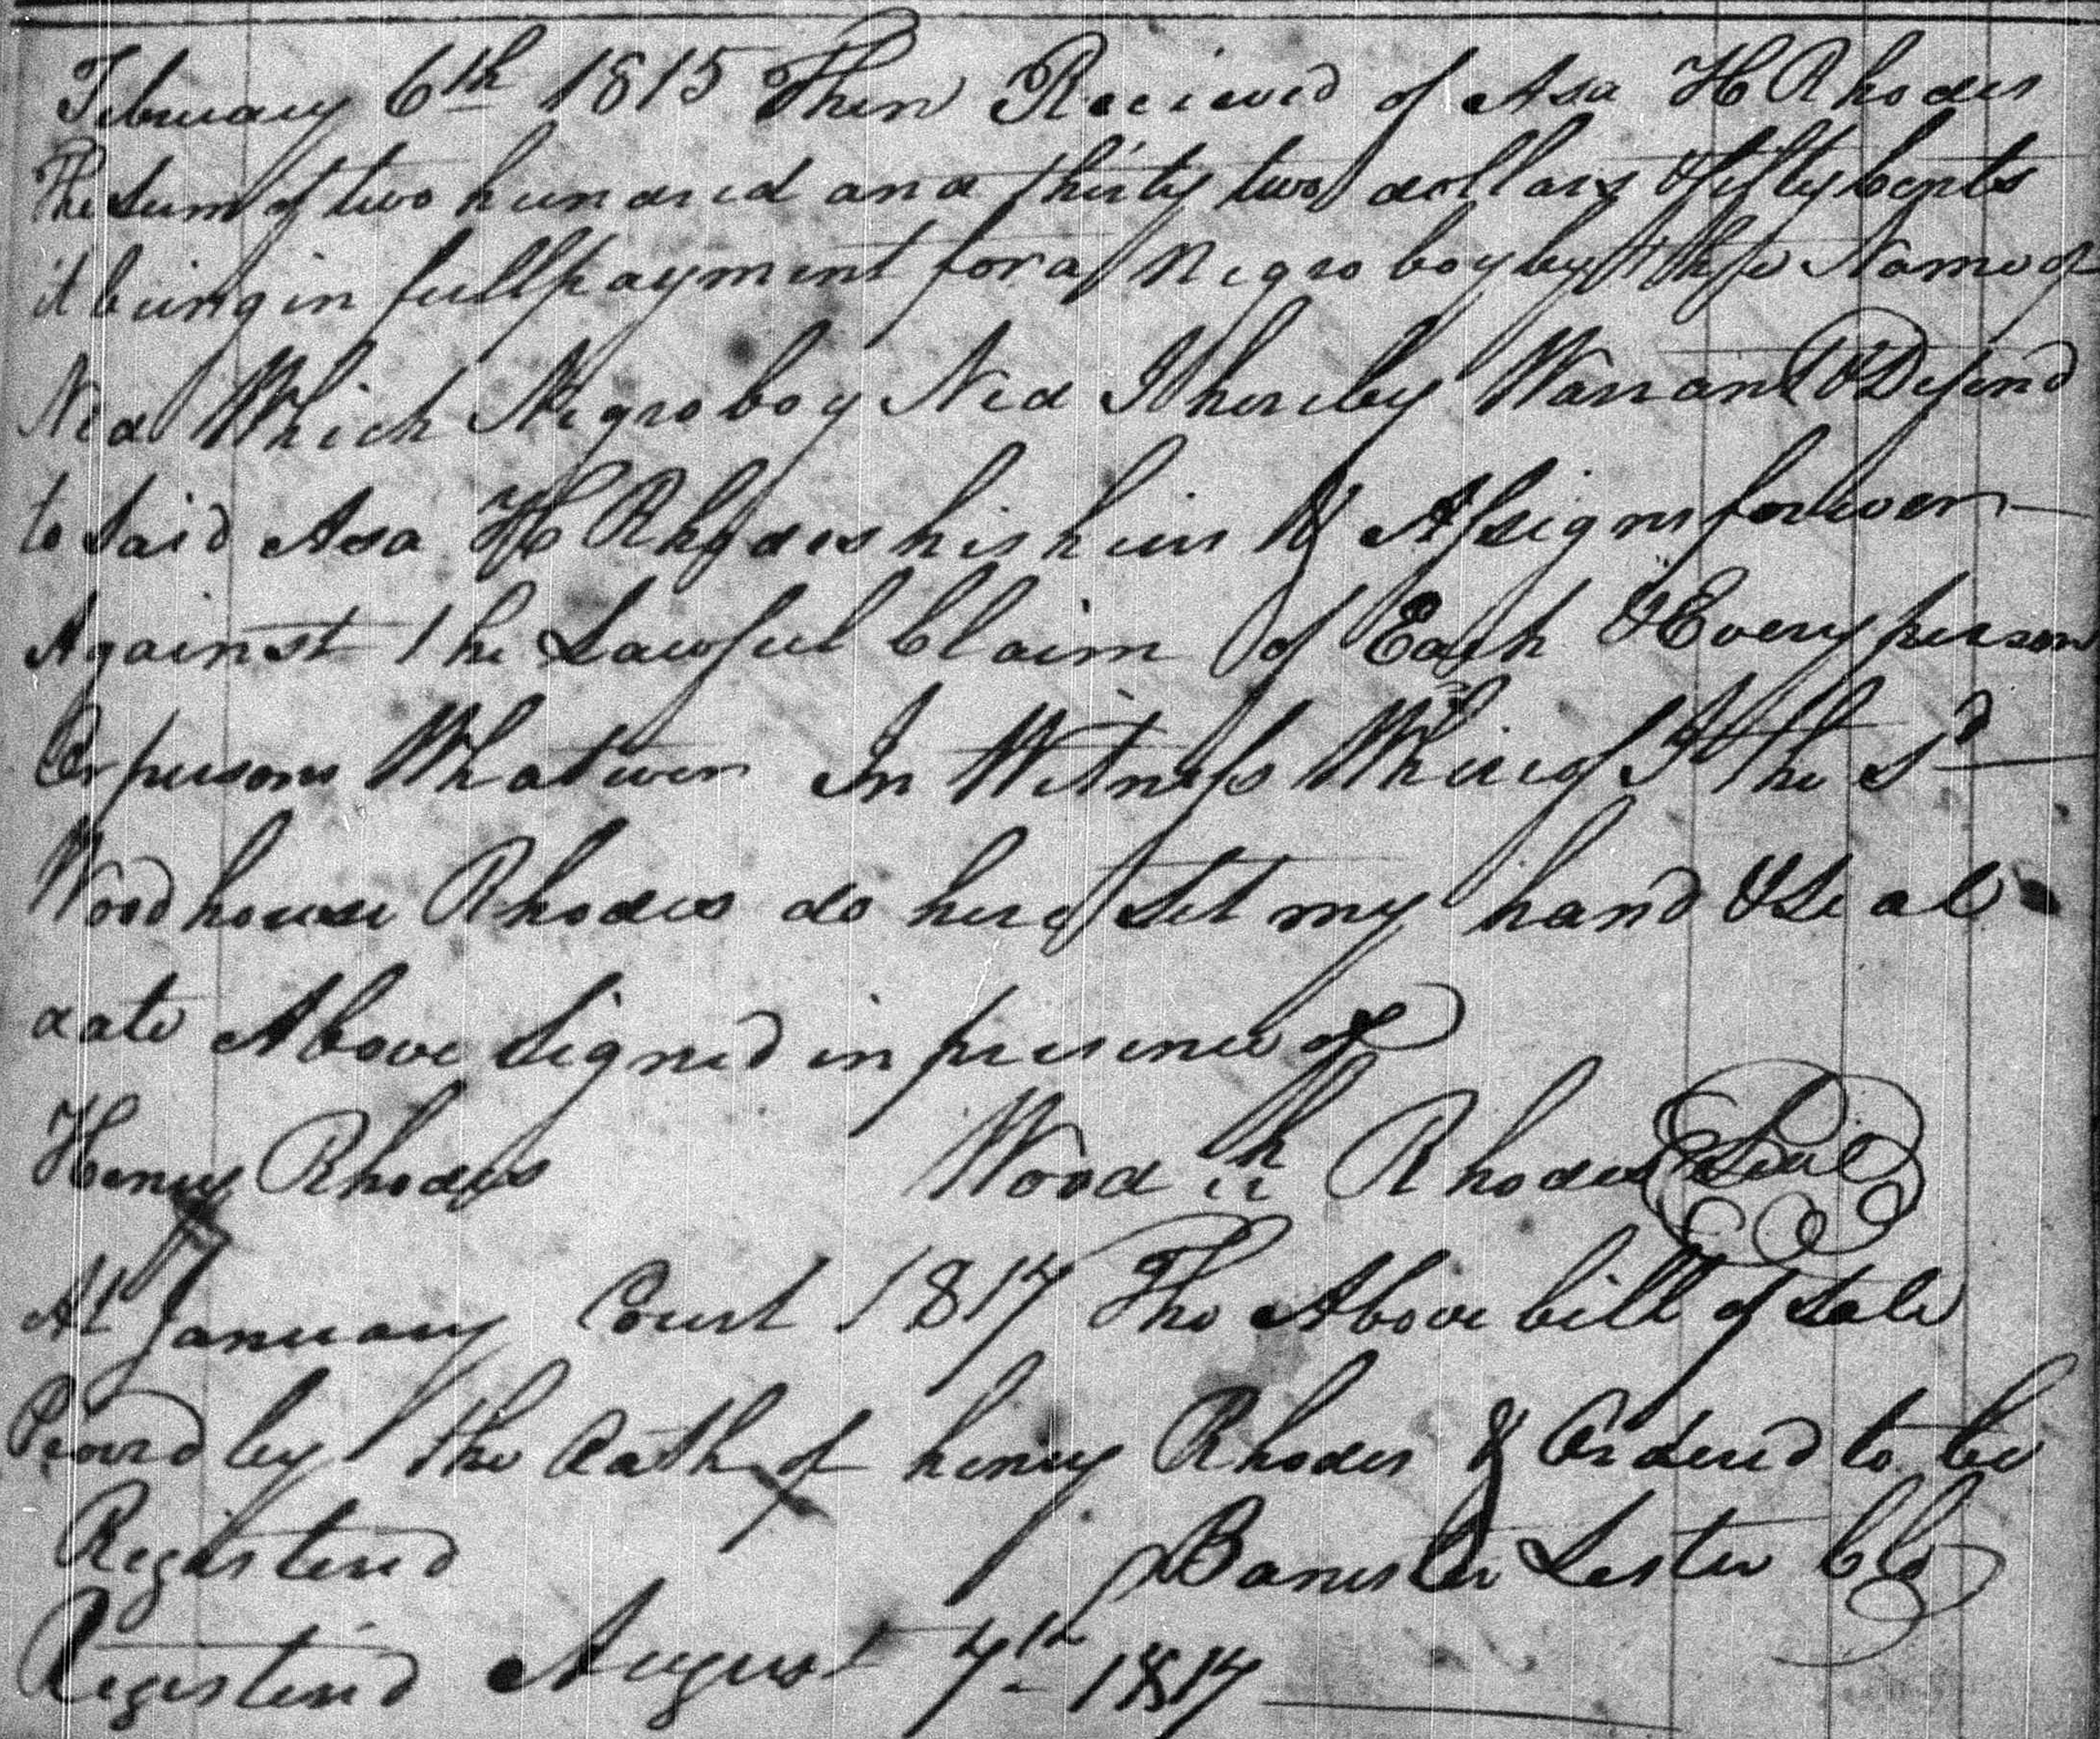 February 6th 1815 Then Recieved of Asa H Rhodes
The Sum of two hundred and thirty two dollars & fifty Cents
it being in full payment for a Negro boy by the Name of
Ned Which Negro boy Ned I hereby Warrant & Defend
to Said Asa H Rhodes his heirs & Assigns forever
Against the Lawful Claim of Each & Every person
Or persons Whatever In Witness Whereof I the Sd
Woodhouse Rhodes do here Set my hand & Seal
date Above Signed in presence of
Henry Rhodes Wood h Rhodes Seal
At January Court 1817 The Above bill of Sale
Proved by the Oath of henry Rhodes & Ordered to be
Registered Banister Lester Clk
Registered August 7th 1817